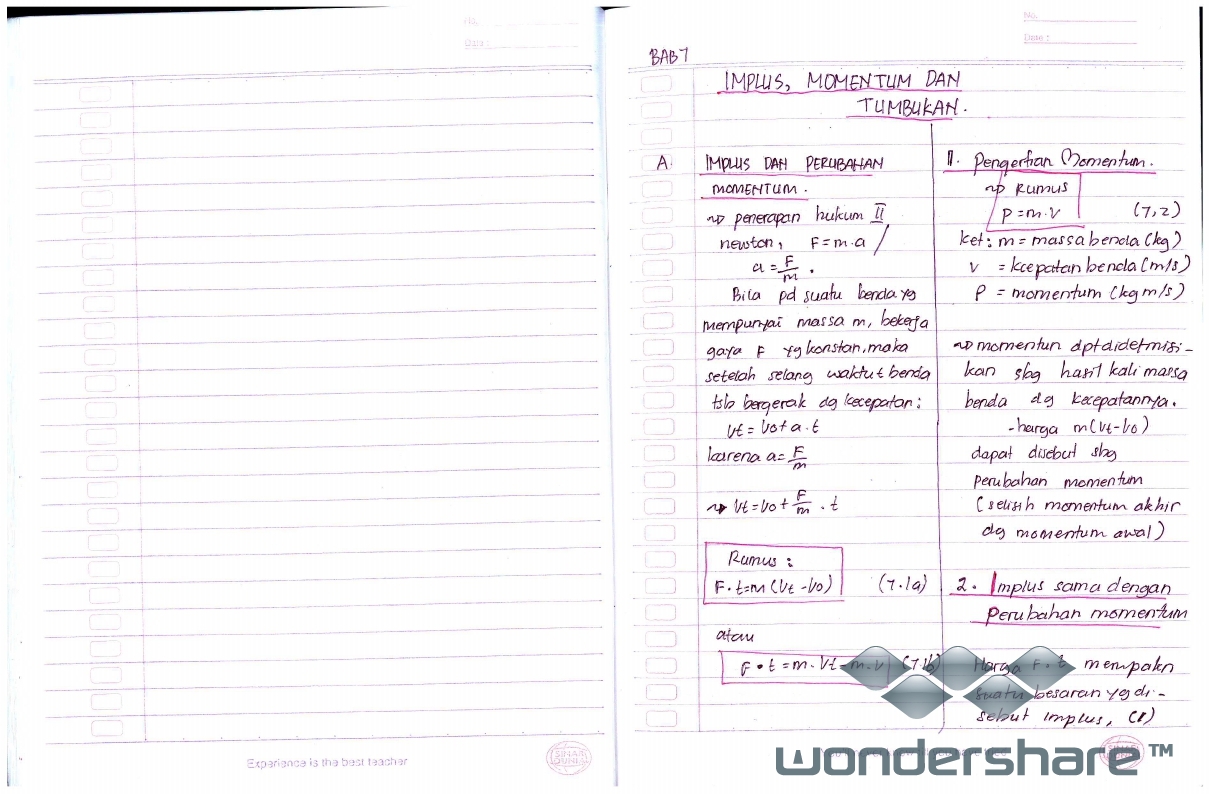 No.
Date :
Experience is the best teacher
SINAR DUNIA
No.
Date :
BAB 7
IMPLUS, MOMENTUM DAN
TUMBUKAN.
A. IMPLUS DAN PERUBAHAN
MOMENTUM.
~> penerapan hukum II
newton, F = m.a /
a = F/m .
Bila pd suatu benda yg
mempunyai massa m, bekerja
gaya F yg konstan, maka
setelah selang waktu t benda
tsb bergerak dg kecepatan:
Vt = Vo + a . t
karena a = F/m
~> Vt = Vo + F/m . t
Rumus :
F . t = m (Vt - Vo) (7.1a)
atau
F . t = m . Vt - m . V (7.1b)
1. Pengertian Momentum.
~> Rumus
P = m.v (7,2)
ket: m = massa benda (kg)
V = kcepatan benda (m/s)
P = momentum (kg m/s)
~> momentun dpt didefinisi-
kan sbg hasil kali massa
benda dg kecepatannya.
- harga m (Vt - Vo)
dapat disebut sbg
perubahan momentum
(selisih momentum akhir
dg momentum awal)
2. Implus sama dengan
perubahan momentum
Harga F . t merupakn
suatu besaran yg di-
sebut implus, (I)
wondershare™